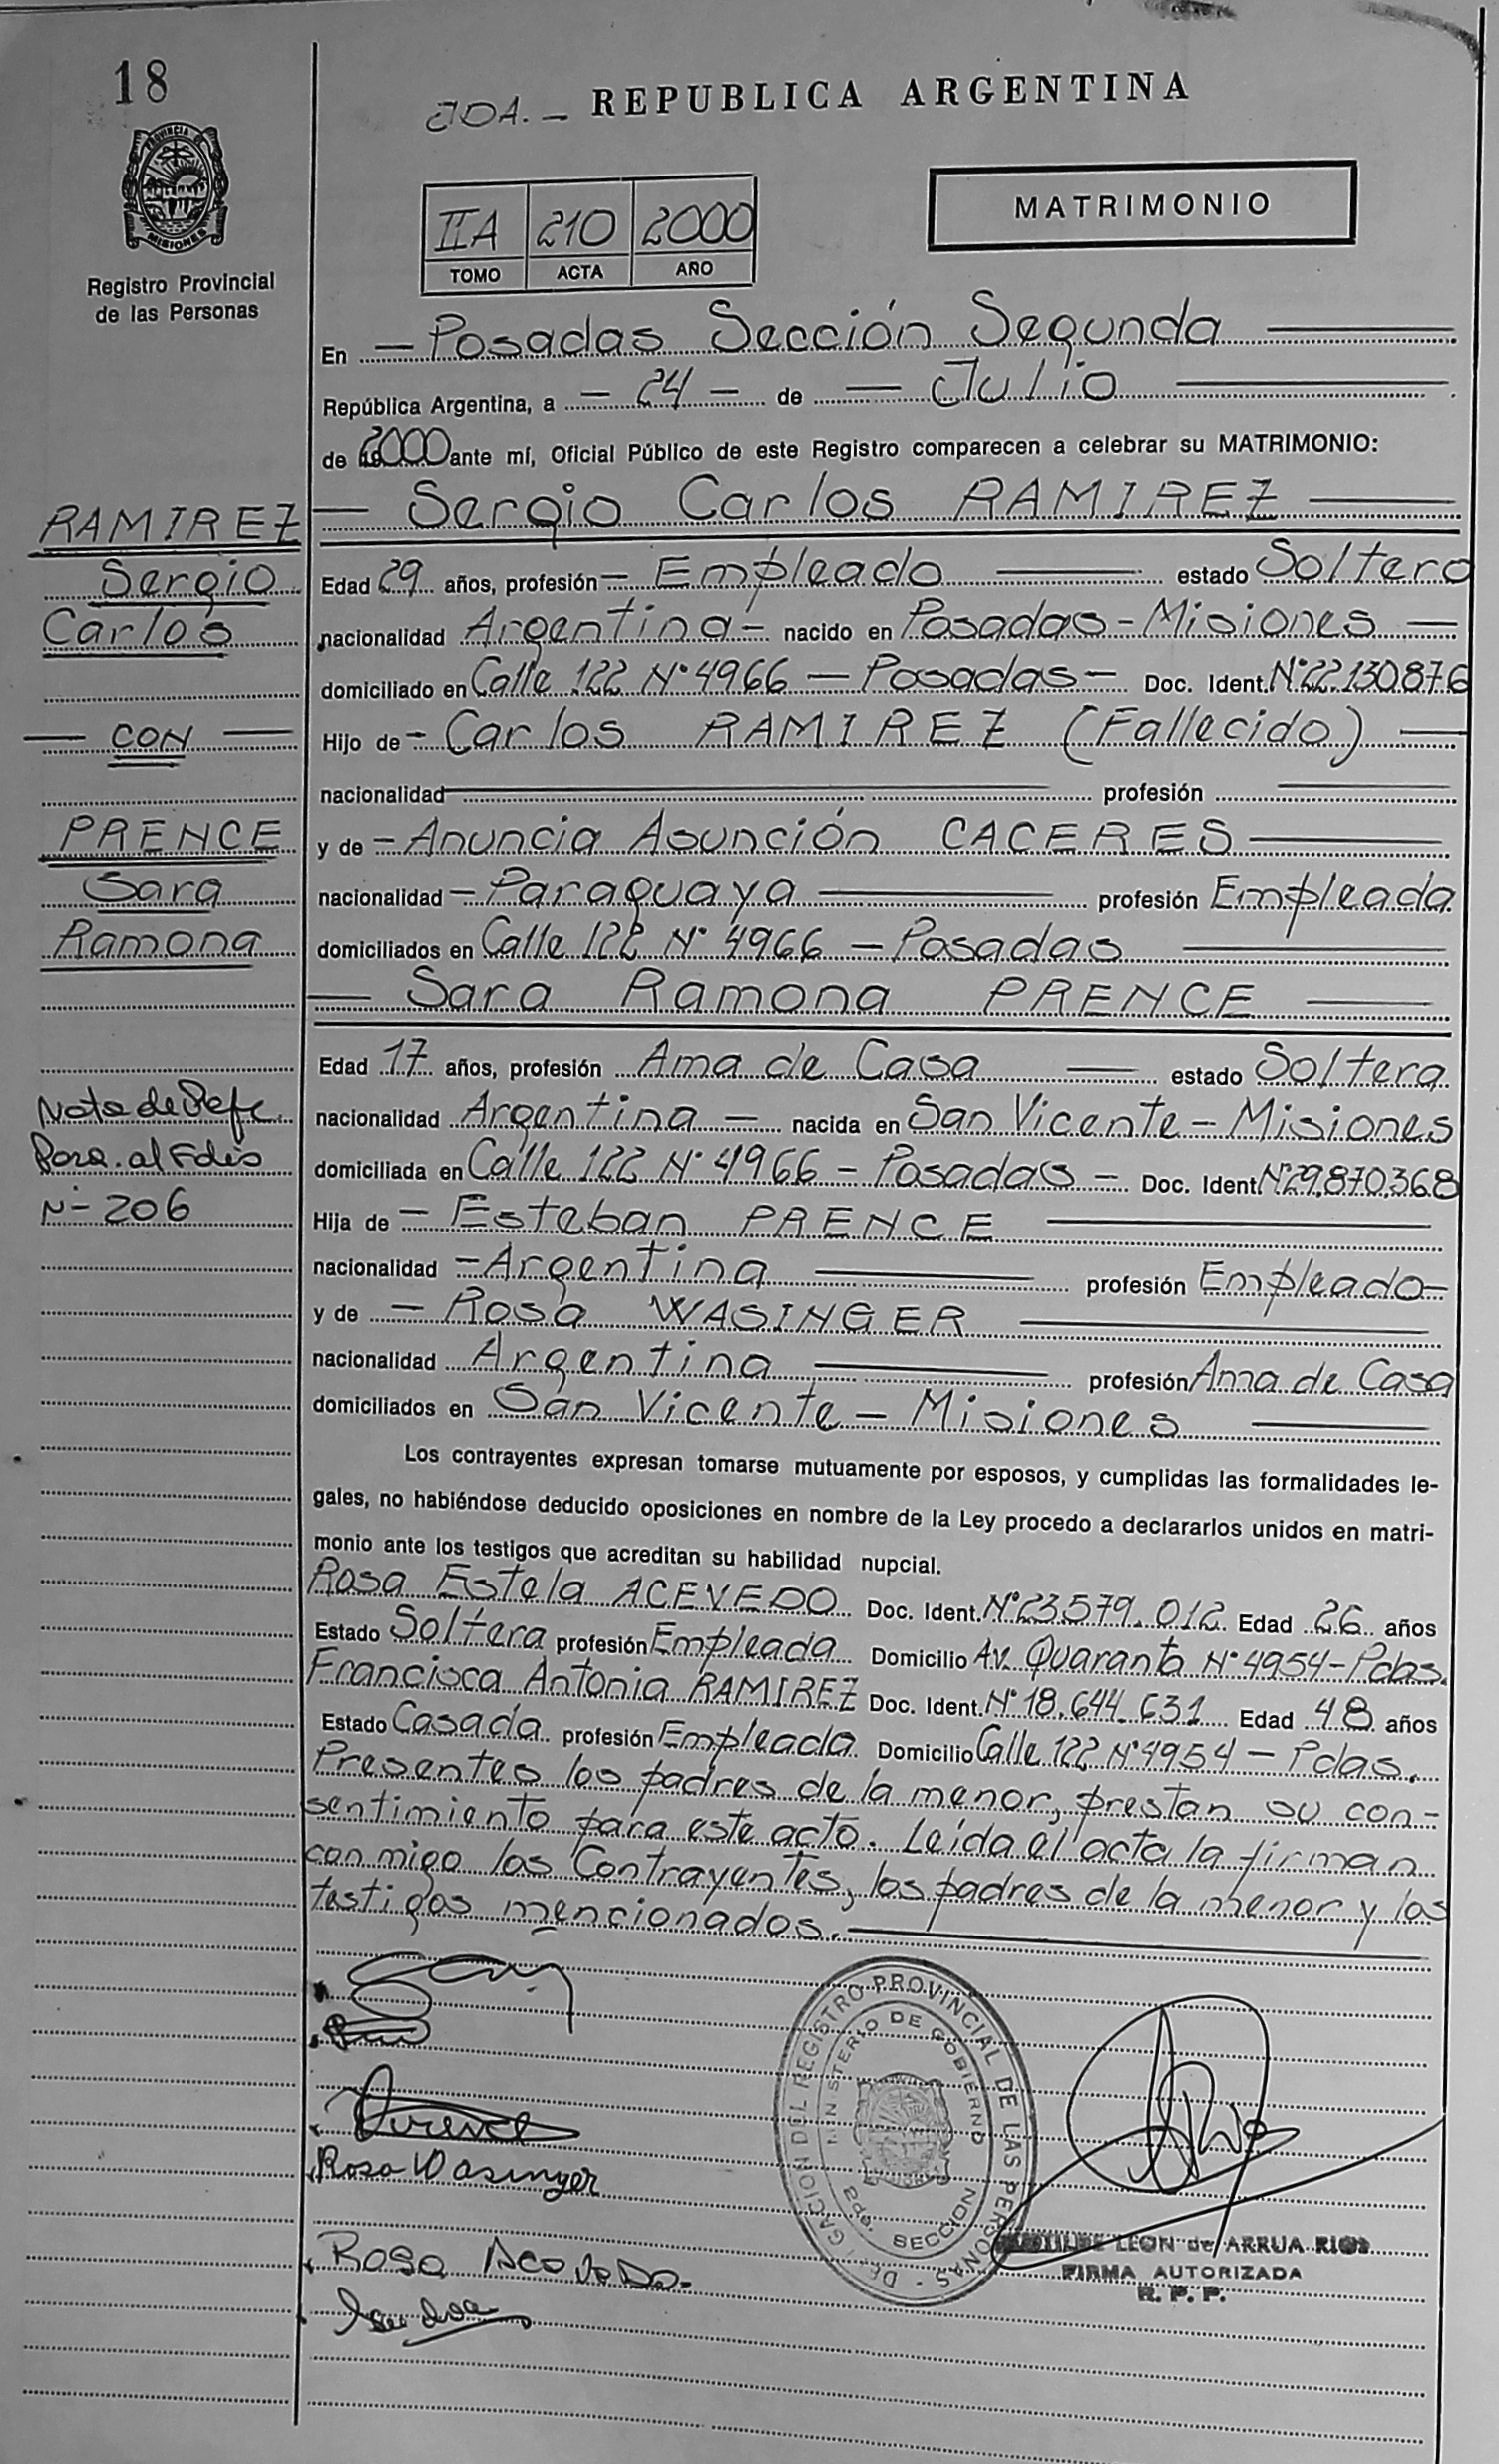 18
JDA. — REPUBLICA ARGENTINA
PROVINCIA DE
MISIONES
Registro Provincial
de las Personas
MATRIMONIO
IIA 210 2000
TOMO ACTA AÑO
En — Posadas Sección Segunda
República Argentina, a — 24 — de — Julio
de 2000 ante mí, Oficial Público de este Registro comparecen a celebrar su MATRIMONIO:
RAMIREZ
Sergio
Carlos
— CON —
PRENCE
Sara
Ramona
— Sergio Carlos RAMIREZ
Edad 29 años, profesión — Empleado estado Soltero
nacionalidad Argentina — nacido en Posadas - Misiones —
domiciliado en Calle 122 N° 4966 — Posadas — Doc. Ident. N° 22.130.876
Hijo de — Carlos RAMIREZ (Fallecido) —
nacionalidad profesión
y de — Anuncia Asunción CACERES
nacionalidad — Paraguaya profesión Empleada
domiciliados en Calle 122 N° 4966 — Posadas
— Sara Ramona PRENCE —
Edad 17 años, profesión Ama de Casa estado Soltera
nacionalidad Argentina — nacida en San Vicente — Misiones
domiciliada en Calle 122 N° 4966 — Posadas — Doc. Ident. N° 29.870.368
Hija de — Esteban PRENCE
nacionalidad — Argentina profesión Empleado —
y de — Rosa WASINGER
nacionalidad Argentina profesión Ama de Casa
domiciliados en San Vicente — Misiones
Nota de Refe.
Para. al Folio
N- 206
Los contrayentes expresan tomarse mutuamente por esposos, y cumplidas las formalidades le-
gales, no habiéndose deducido oposiciones en nombre de la Ley procedo a declararlos unidos en matri-
monio ante los testigos que acreditan su habilidad nupcial.
Rosa Estela ACEVEDO Doc. Ident. N° 23.579.012 Edad 26 años
Estado Soltera profesión Empleada Domicilio Av. Quaranta N° 4954 - Pdas.
Francisca Antonia RAMIREZ Doc. Ident. N° 18.644.631 Edad 48 años
Estado Casada profesión Empleada Domicilio Calle 122 N° 4954 — Pdas.
Presentes los padres de la menor, prestan su con-
sentimiento para este acto. Leída el acta la firman
conmigo los Contrayentes, los padres de la menor y los
testigos mencionados.
Rosa Wasinger
Rosa Acevedo
DELEGACION DEL REGISTRO PROVINCIAL DE LAS PERSONAS
MINISTERIO DE GOBIERNO
SECCION
LEON de ARRUA RIOS
FIRMA AUTORIZADA
R. P. P.